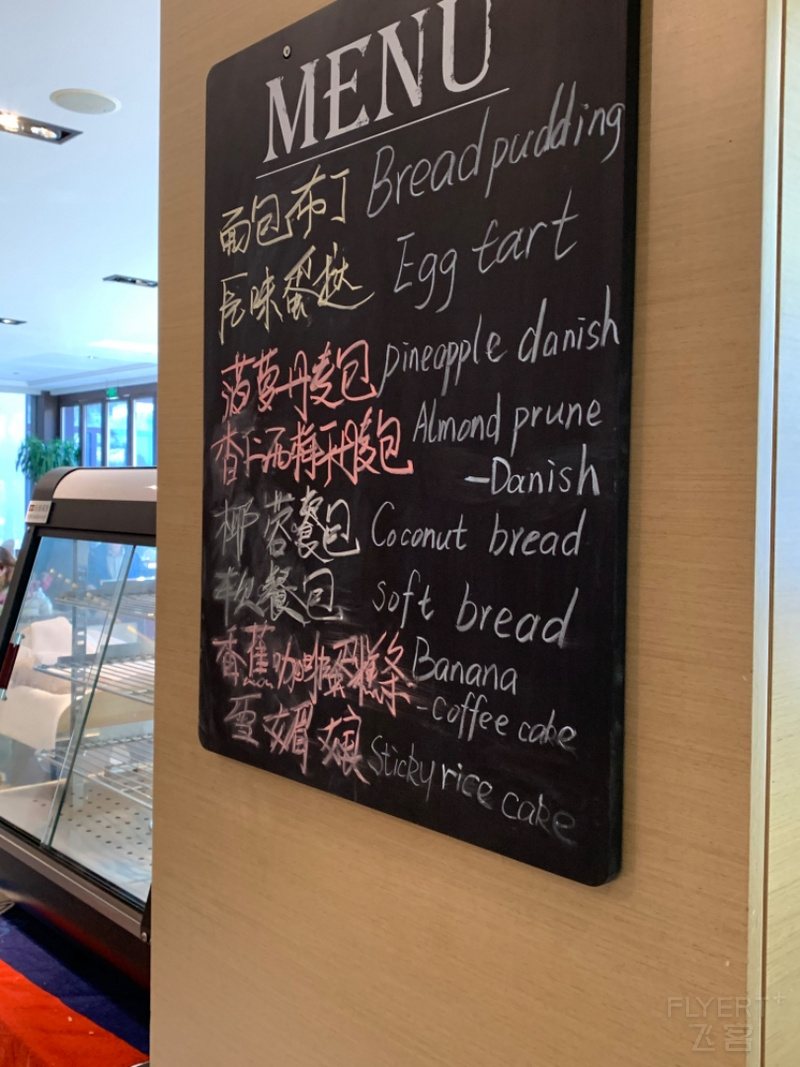 MENU
面包布丁 Bread pudding
原味蛋挞 Egg tart
菠萝丹麦包 pineapple danish
杏仁西梅丹麦包 Almond prune
-Danish
椰蓉餐包 Coconut bread
軟餐包 soft bread
香蕉咖啡蛋糕条 Banana
-Coffee cake
雪媚娘 Sticky rice cake
FLYERT+
飞客